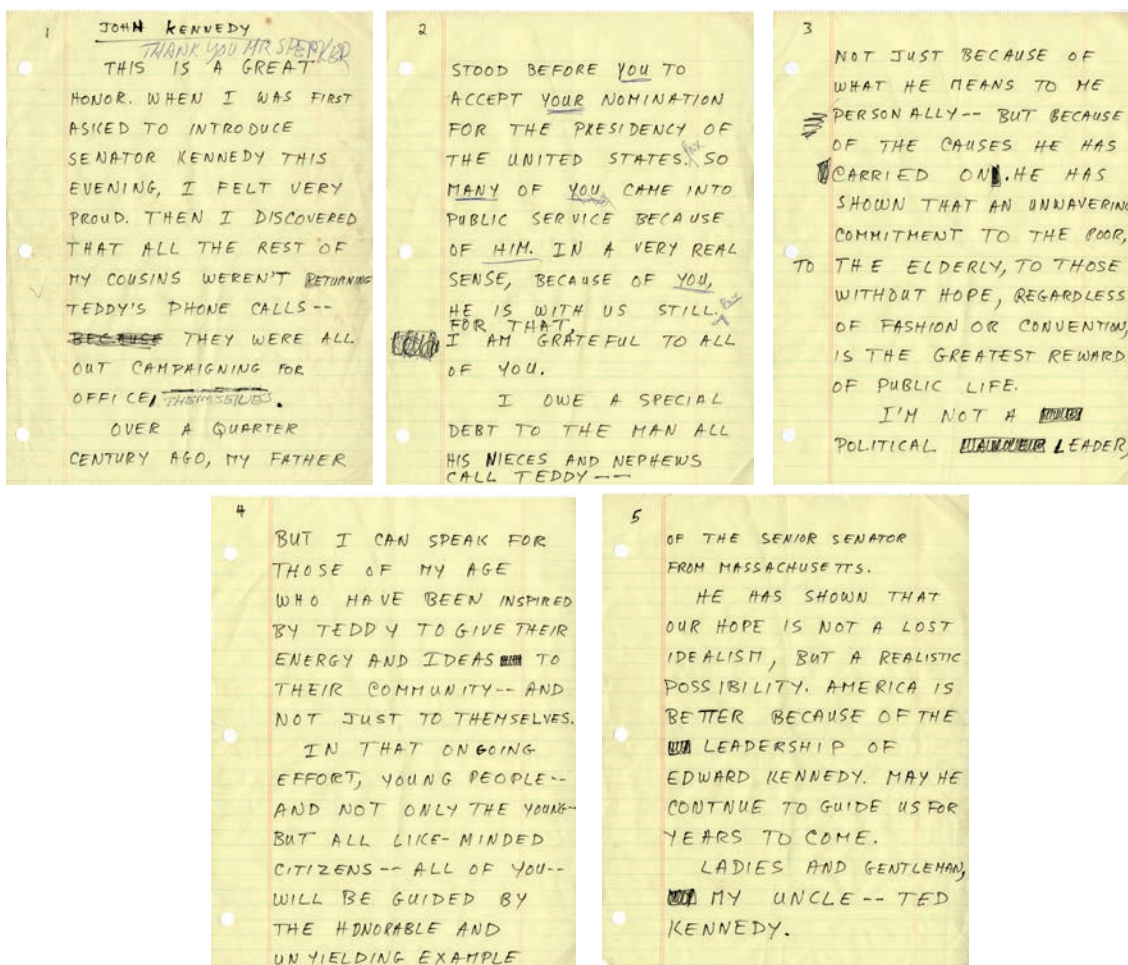 1
JOHN KENNEDY
THANK YOU MR SPEAKER
THIS IS A GREAT
HONOR. WHEN I WAS FIRST
ASKED TO INTRODUCE
SENATOR KENNEDY THIS
EVENING, I FELT VERY
PROUD. THEN I DISCOVERED
THAT ALL THE REST OF
MY COUSINS WEREN'T RETURNING
TEDDY'S PHONE CALLS--
BECAUSE THEY WERE ALL
OUT CAMPAIGNING FOR
OFFICE, THEMSELVES.
OVER A QUARTER
CENTURY AGO, MY FATHER
2
STOOD BEFORE YOU TO
ACCEPT YOUR NOMINATION
FOR THE PRESIDENCY OF
THE UNITED STATES. SO
MANY OF YOU CAME INTO
PUBLIC SERVICE BECAUSE
OF HIM. IN A VERY REAL
SENSE, BECAUSE OF YOU,
HE IS WITH US STILL.
FOR THAT,
I AM GRATEFUL TO ALL
OF YOU.
I OWE A SPECIAL
DEBT TO THE MAN ALL
HIS NIECES AND NEPHEWS
CALL TEDDY--
3
NOT JUST BECAUSE OF
WHAT HE MEANS TO ME
PERSONALLY-- BUT BECAUSE
OF THE CAUSES HE HAS
CARRIED ON. HE HAS
SHOWN THAT AN UNWAVERING
COMMITMENT TO THE POOR,
TO THE ELDERLY, TO THOSE
WITHOUT HOPE, REGARDLESS
OF FASHION OR CONVENTION,
IS THE GREATEST REWARD
OF PUBLIC LIFE.
I'M NOT A
POLITICAL LEADER,
4
BUT I CAN SPEAK FOR
THOSE OF MY AGE
WHO HAVE BEEN INSPIRED
BY TEDDY TO GIVE THEIR
ENERGY AND IDEAS TO
THEIR COMMUNITY-- AND
NOT JUST TO THEMSELVES.
IN THAT ONGOING
EFFORT, YOUNG PEOPLE--
AND NOT ONLY THE YOUNG-
BUT ALL LIKE-MINDED
CITIZENS-- ALL OF YOU--
WILL BE GUIDED BY
THE HONORABLE AND
UNYIELDING EXAMPLE
5
OF THE SENIOR SENATOR
FROM MASSACHUSETTS.
HE HAS SHOWN THAT
OUR HOPE IS NOT A LOST
IDEALISM, BUT A REALISTIC
POSSIBILITY. AMERICA IS
BETTER BECAUSE OF THE
LEADERSHIP OF
EDWARD KENNEDY. MAY HE
CONTNUE TO GUIDE US FOR
YEARS TO COME.
LADIES AND GENTLEMAN,
MY UNCLE-- TED
KENNEDY.